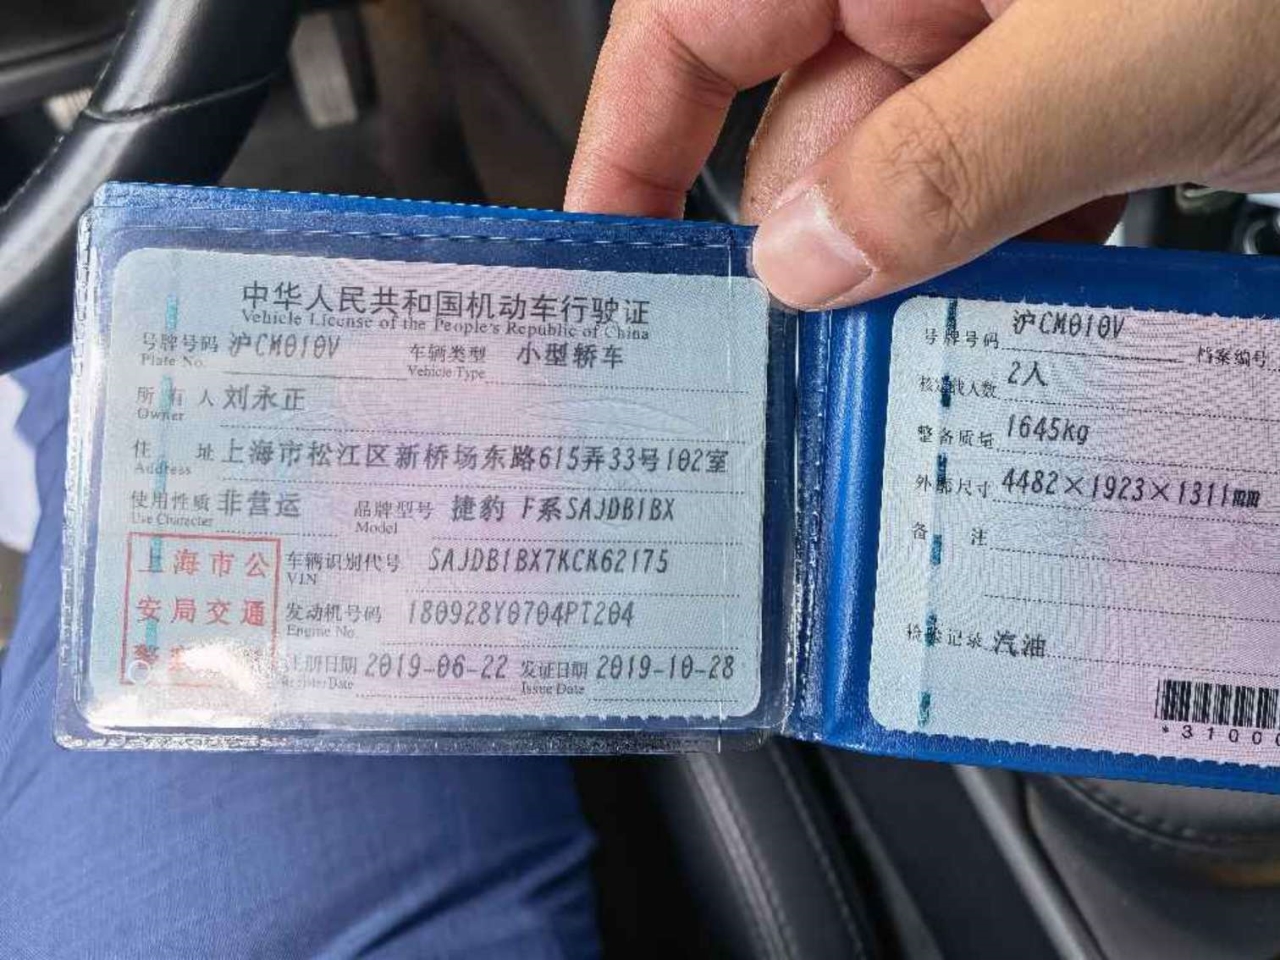 中华人民共和国机动车行驶证
Vehicle License of the People's Republic of China
号牌号码 沪CM010V 车辆类型 小型轿车
Plate No. Vehicle Type
所有人 刘永正
Owner
住址 上海市松江区新桥场东路615弄33号102室
Address
使用性质 非营运 品牌型号 捷豹 F系SAJDB1BX
Use Character Model
上海市公
安局交通
车辆识别代号 SAJDB1BX7KCK62175
VIN
发动机号码 180928Y0704PT204
Engine No.
注册日期 2019-06-22 发证日期 2019-10-28
Register Date Issue Date
号牌号码 沪CM010V 档案编号
核定载人数 2人
整备质量 1645kg
外廓尺寸 4482×1923×1311mm
备注
检验记录 汽油
*31000